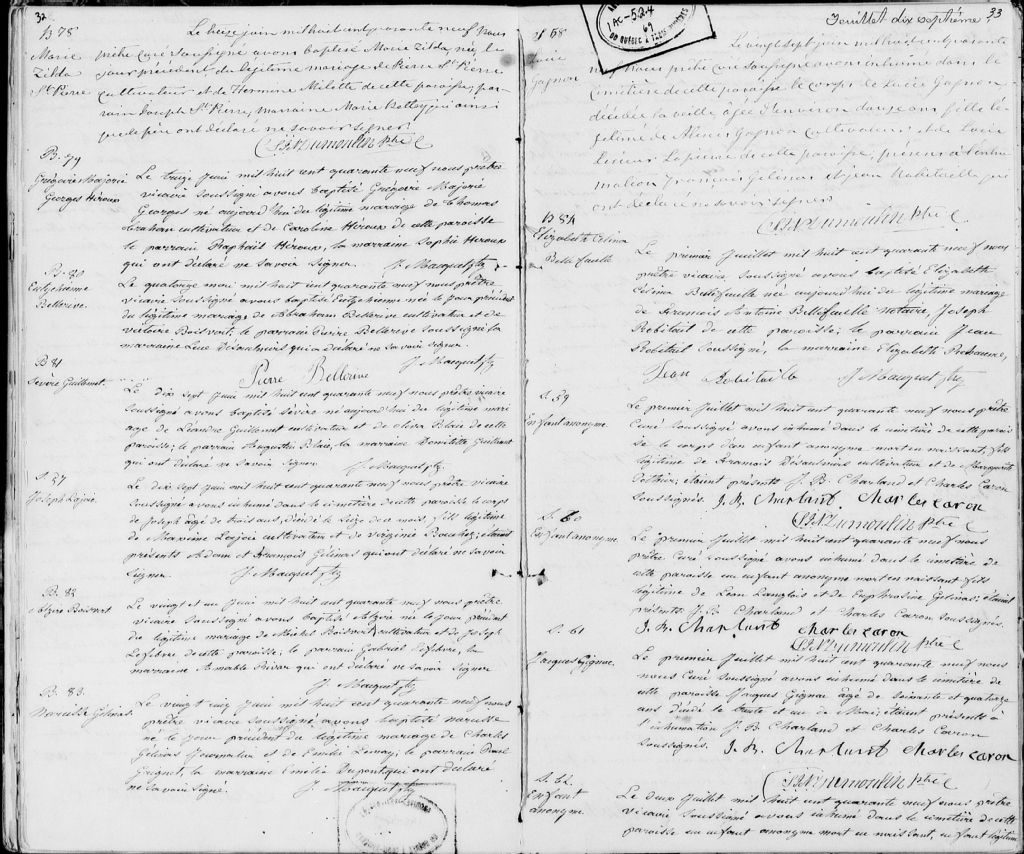 32
B 78
Marie
Zilda
St Pierre
Le treize juin mil huit cent quarante neuf, nous
prêtre curé soussigné avons baptisé Marie Zilda, née le
jour précédent du légitime mariage de Pierre St Pierre
cultivateur et de Hermine Milette de cette paroisse, par-
rain Joseph St Pierre, Marraine Marie Bettey qui ainsi
que le père ont déclaré ne savoir signer.
S. N. Dumoulin Ptre C
B. 79
Grégoire Majorié
Georges Héroux
Le treize Juin mil huit cent quarante neuf nous prêtre
vicaire soussigné avons baptisé Grégoire Majorié
Georges né aujourd'hui du légitime mariage de Thomas
Graham cultivateur et de Caroline Héroux de cette paroisse
le parrain Raphaël Héroux, la marraine Sophie Héroux
qui ont déclaré ne savoir signer. J. Maequet ptre
B. 80
Euphémie
Bellerive
Le quatorze mai mil huit cent quarante neuf nous prêtre
vicaire soussigné avons baptisé Euphémie née le jour précédent
du légitime mariage de Abraham Bellerive cultivateur et de
Victoire Boisvert, le parrain Pierre Bellerive soussigné la
marraine Luce Désaulniers qui a déclaré ne savoir signer.
J. Maequet ptre
Pierre Bellerive
B 81
Sévère Guillemet
Le dix sept Juin mil huit cent quarante neuf nous prêtre vicaire
soussigné avons baptisé Sévère né aujourd'hui du légitime mari
age de Léandre Guillemet cultivateur et de Olive Blais de cette
paroisse; le parrain Augustin Blais, la marraine Domitille Guillemet
qui ont déclaré ne savoir signer. J. Maequet ptre
S. 57
Joseph Lajoie
Le dix sept Juin mil huit cent quarante neuf nous prêtre vicaire
soussigné avons inhumé dans le cimetière de cette paroisse le corps
de Joseph âgé de trois ans, décédé le seize du mois, fils légitime
de Maxime Lajoie cultivateur et de Virginie; étaient
présents Adam et Francois Gélinas qui ont déclaré ne savoir
signer. J. Maequet ptre
B. 82
Alzire Boisvert
Le vingt et un Juin mil huit cent quarante neuf nous prêtre
vicaire soussigné avons baptisé Alzire née le jour précédent
du légitime mariage de Michel Boisvert cultivateur et de Joseph
Lefebvre de cette paroisse, le parrain Gabriel Lefebvre, la
marraine Amable Rivar qui ont déclaré ne savoir signer
J. Maequet ptre
B. 83.
Narcisse Gélinas
Le vingt cinq Juin mil huit cent quarante neuf nous
prêtre vicaire soussigné avons baptisé Narcisse
né le jour précédent du légitime mariage de Charles
Gélinas Journalier et de Emilie Lemay; le parrain Paul
la marraine Emélie Dupont qui ont déclaré
ne savoir signé. J. Maequet ptre
Feuillet dix septième 33
LAC-524
69
DU QUÉBEC À TROIS-RIVIÈRES
S 58
Lucie
Gagnon
Le vingt sept juin mil huit cent quarante
neuf nous prêtre curé soussigné avons inhumé dans le
cimetière de cette paroisse le corps de Lucie Gagnon,
décédée la veille âgée d'environ douze ans fille lé-
gitime de Gagnon cultivateur et de Lucie
de cette paroisse, présens à l'inhu-
mation François Gélinas et Jean Robitaille qui
ont déclaré ne savoir signer.
S. N. Dumoulin Ptre C
B 84
Elizabeth Célina
Bellefeuille
Le premier Juillet mil huit cent quarante neuf nous
prêtre vicaire soussigné avons baptisé Elizabeth
Célina Bellefeuille née aujourd'hui du légitime mariage
de Francois Antoine Bellefeuille notaire, Joseph
Robitail de cette paroisse; le parrain Jean
Robitail soussigné, la marraine Elizabeth
Jean Robitaile J Maequet ptre
S. 59
Enfant anonyme
Le premier Juillet mil huit cent quarante neuf nous prêtre
Curé soussigné avons inhumé dans le cimetière de cette parois
se le corps d'un enfant anonyme mort en naissant, fils
légitime de Francois Désaulniers cultivateur et de Marguerite
Pothier; étaient présents J. B. Charland et Charles Caron
soussignés. J. B. Charlant Charles caron
S. N. Dumoulin Ptre C
S. 60
Enfant anonyme
Le premier Juillet mil huit cent quarante neuf nous
prêtre Curé soussigné avons inhumé dans le cimetière de
cette paroisse un enfant anonyme mort en naissant fils
légitime de Léon Langlois et de Euphrosine Gélinas; étaient
présents J. B Charland et Charles Caron soussignés.
J. B. Charlant Charles caron
S. N. Dumoulin Ptre C
S. 61
Jacques Gignac
Le premier Juillet mil huit cent quarante neuf nous
nous Curé soussigné avons inhumé dans le cimetière de
cette paroisse Jacques Gignac âgé de soixante et quatorze
ans décédé le trente et un de Mai; étaient présents à
l'inhumation J. B Charland et Charles Caron
soussignés. J. B. Charlant Charles caron
S. N. Dumoulin Ptre C
S. 62.
Enfant
anonyme.
Le deux Juillet mil huit cent quarante neuf nous prêtre
vicaire soussigné avons inhumé dans le cimetière de cette
paroisse un enfant anonyme mort en naissant, enfant légitime